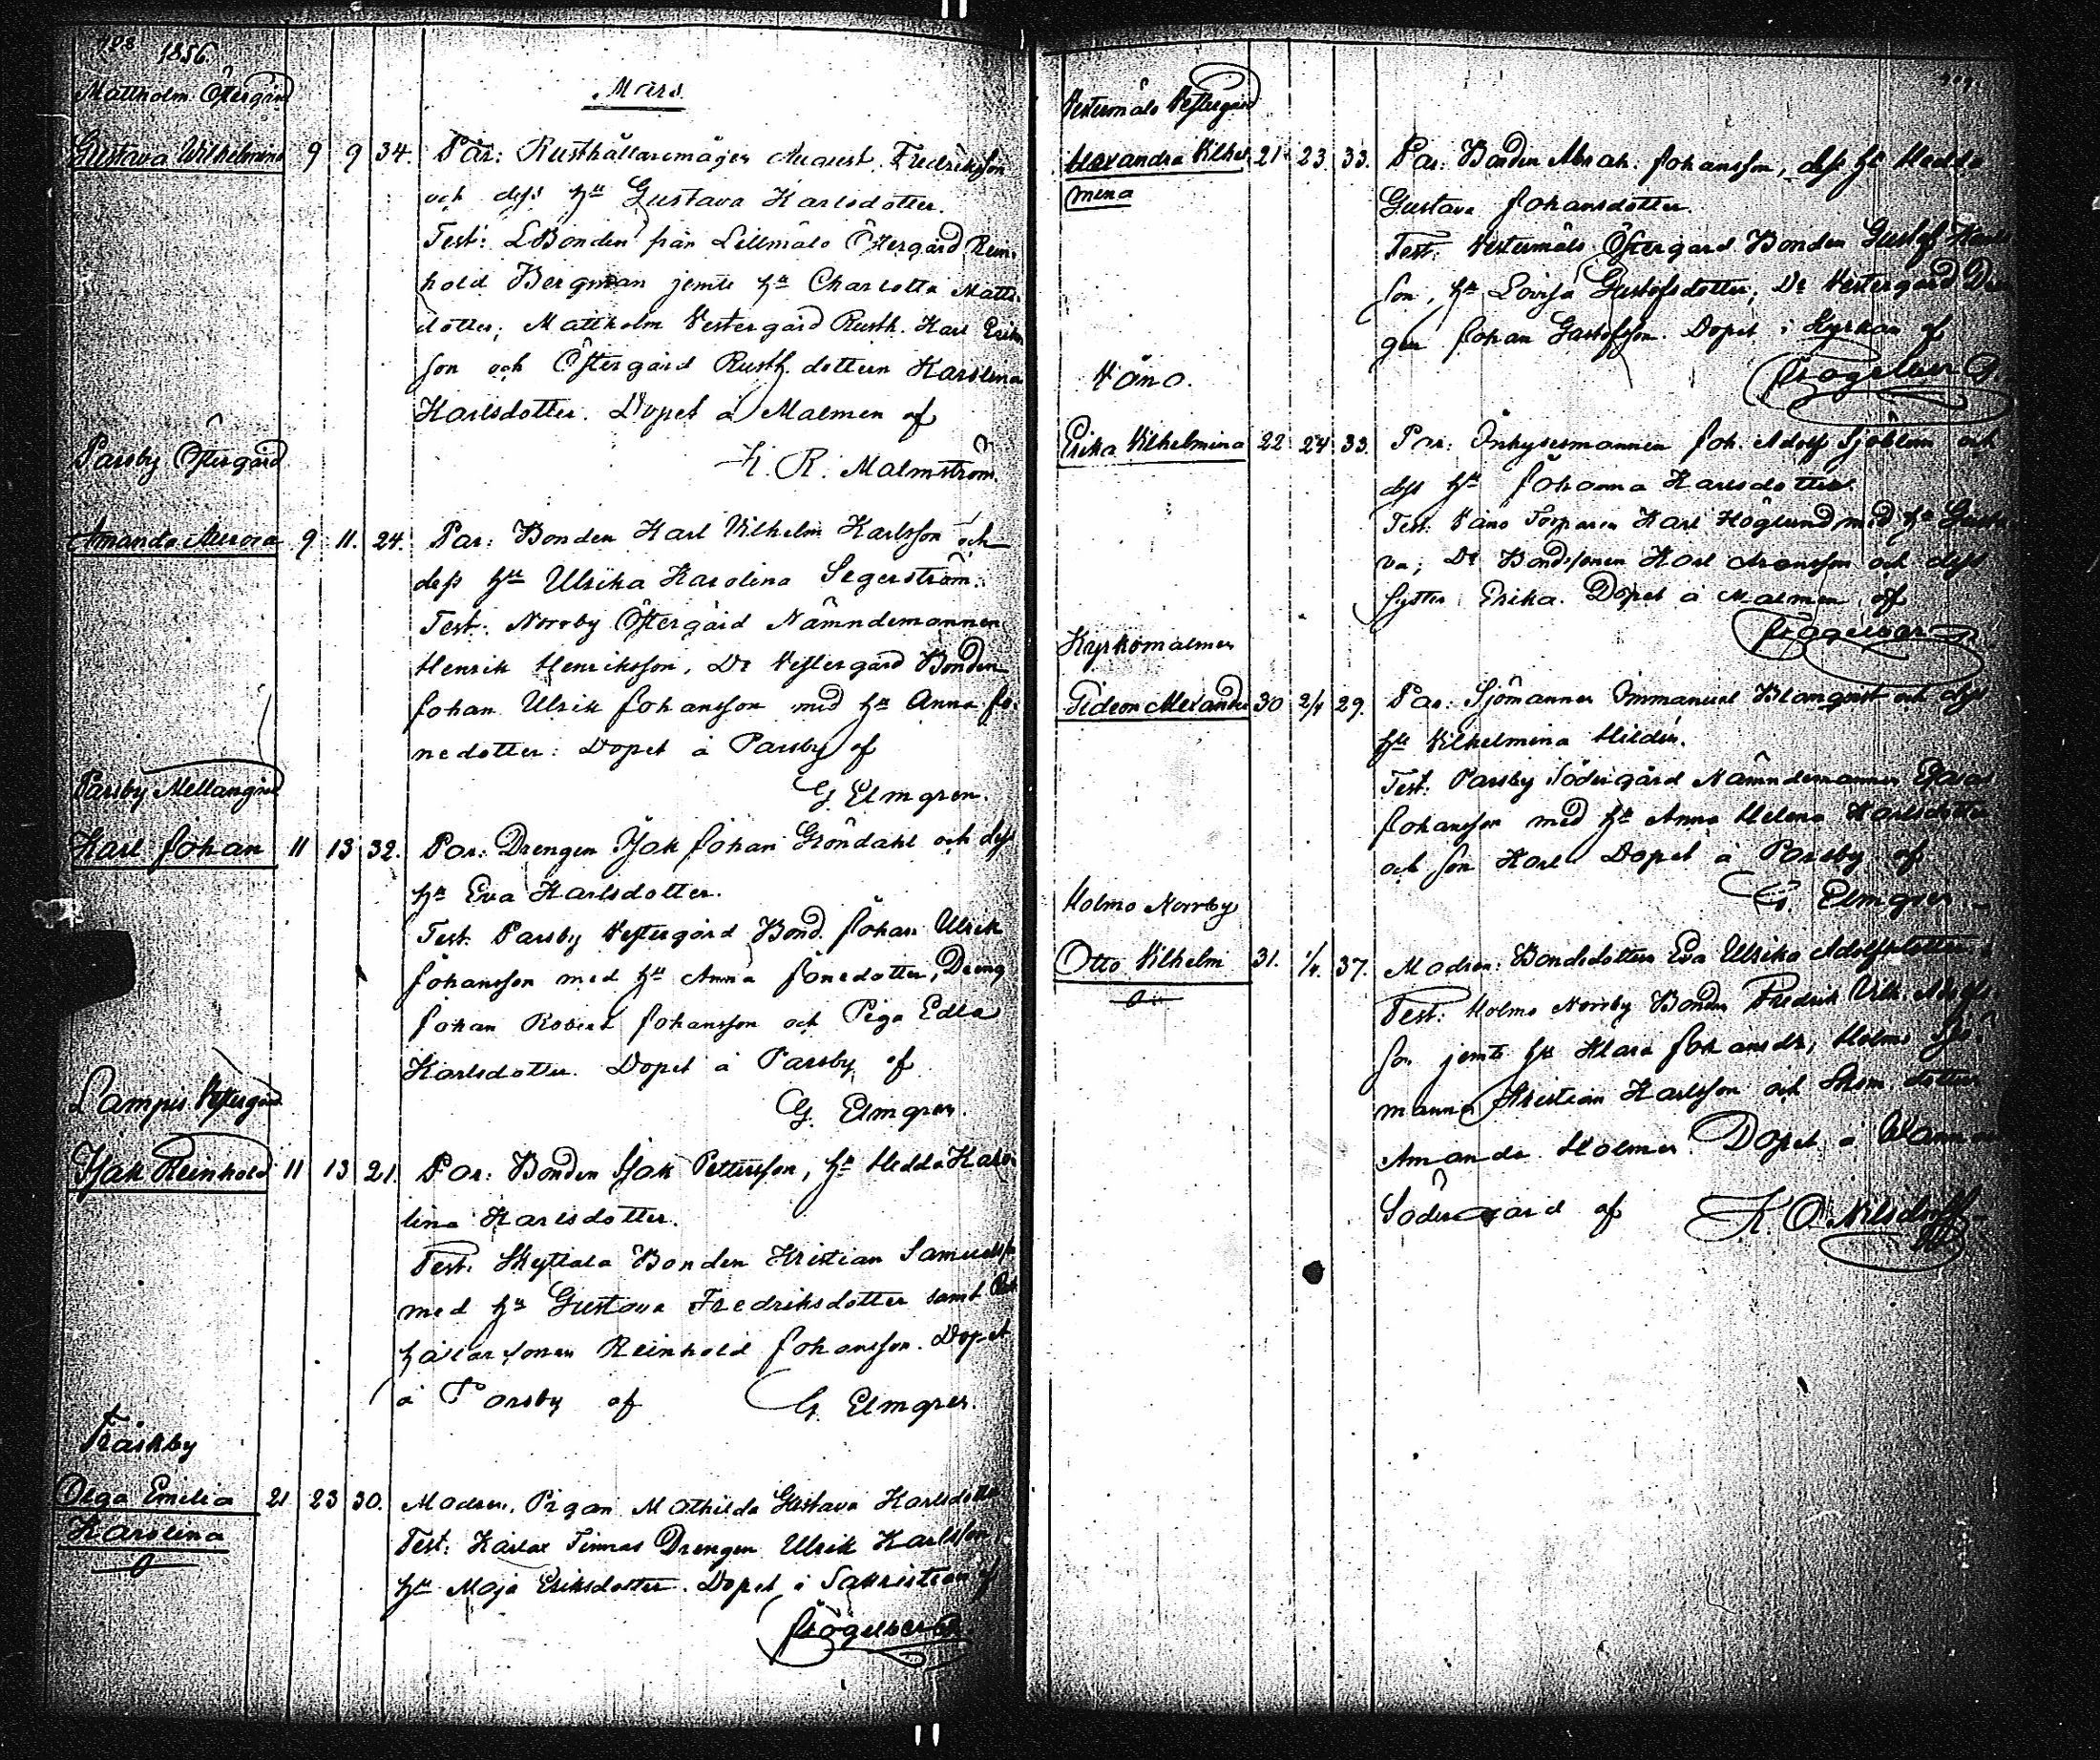 208 1856.
Mars.
Mattholm Östergård
Gustava Wilhelmina 9 9 34. Par: Rusthållaremågen August Fredriksson
och dess hu Gustava Karlsdotter.
Test: Bonden från Lillmälo Östergård Rein-
hold Bergman jemte hu Charlotta Matts-
dotter; Mattholm Vestergård Rusth. Karl Eriks
son och Östergård Rusth. dottern Karolina
Karlsdotter. Döpet å Malmen af
K. R. Malmström.
Parsby Östergård
Amanda Aurora 9 11. 24. Par: Bonden Karl Vilhelm Karlsson och
dess hu Ulrika Karolina Segerström.
Test: Norrby Östergård Nämndemannen
Henrik Henriksson, Do Vestergård Bonden
Johan Ulrik Johansson med hu Anna Jo-
nedotter. Döpet å Parsby af
G. Elmgren.
Parsby Mellangård
Karl Johan 11 13 32. Par: Drengen Isak Johan Gröndahl och dess
hu Eva Karlsdotter.
Test. Parsby Vestergård Bond. Johan Ulrik
Johansson med hu Anna Jonedotter, Dreng
Johan Robert Johansson och Piga Edla
Karlsdotter. Döpet å Parsby af
G. Elmgren.
Lampis Vestergård
Isak Reinhold 11 13 21. Par: Bonden Isak Pettersson, hu Hedda Karo
lina Karlsdotter.
Test. Skyttala Bonden Kristian Samuelss
med hu Gustava Fredriksdotter samt
hållarsonen Reinhold Johansson. Döpet
å Parsby af G. Elmgren.
Träskby
Olga Emilia 21 23 30. Modren, Pigan Mathilda Gustava Karlsdotter
Karolina
Test: Kärlax Finnas Drengen Ulrik Karlsson,
hu Maja Eriksdotter. Döpet i Sakristian af
Fogelberg.
Vestermälo Vestergård
Alexandra Vilhel 21 23. 33. Par: Bonden Abrah. Johansson, dess hu Hedda
mina
Gustava Johansdotter.
Test. Vestermälo Östergård Bonden Gustaf Karls
son, hu Lovisa Gustafsdotter; Do Vestergård Dren
gen Johan Gustafsson. Döpet i Kyrkan af
Fogelberg.
Våno.
Erika Vilhelmina 22. 24. 33. Par: Inhysesmannen Joh. Adolf Sjöblom och
dess hu Johanna Karlsdotter.
Test. Våno Torparen Karl Höglund med hu Gusta
va; Do Bondsonen Karl Aronsson och dess
syster Erika. Döpet å Malmen af
Fogelberg
Kyrkomalmen
Gideon Alexander 30 2/4 29. Par: Sjömannen Immanuel Blomqvist och dess
hu Vilhelmina Hildén.
Test: Parsby Södergård Nämndemannen Esaias
Johansson med hu Anna Helena Karlsdotter
och son Karl. Döpet å Parsby af
G. Elmgren
Holmo Norrby
Otto Vilhelm 31. 1/4. 37. Modren: Bondedottern Eva Ulrika Adolfsdotter
Test: Holmo Norrby Bonden Fredrik Vilh. Adolfs
son jemte hu Klara Johansdr, Holmo Sjö-
mannen Kristian Karlsson och dottern
Amanda Holmen. Döpet å
Södergård af K. O. Nilsdorff